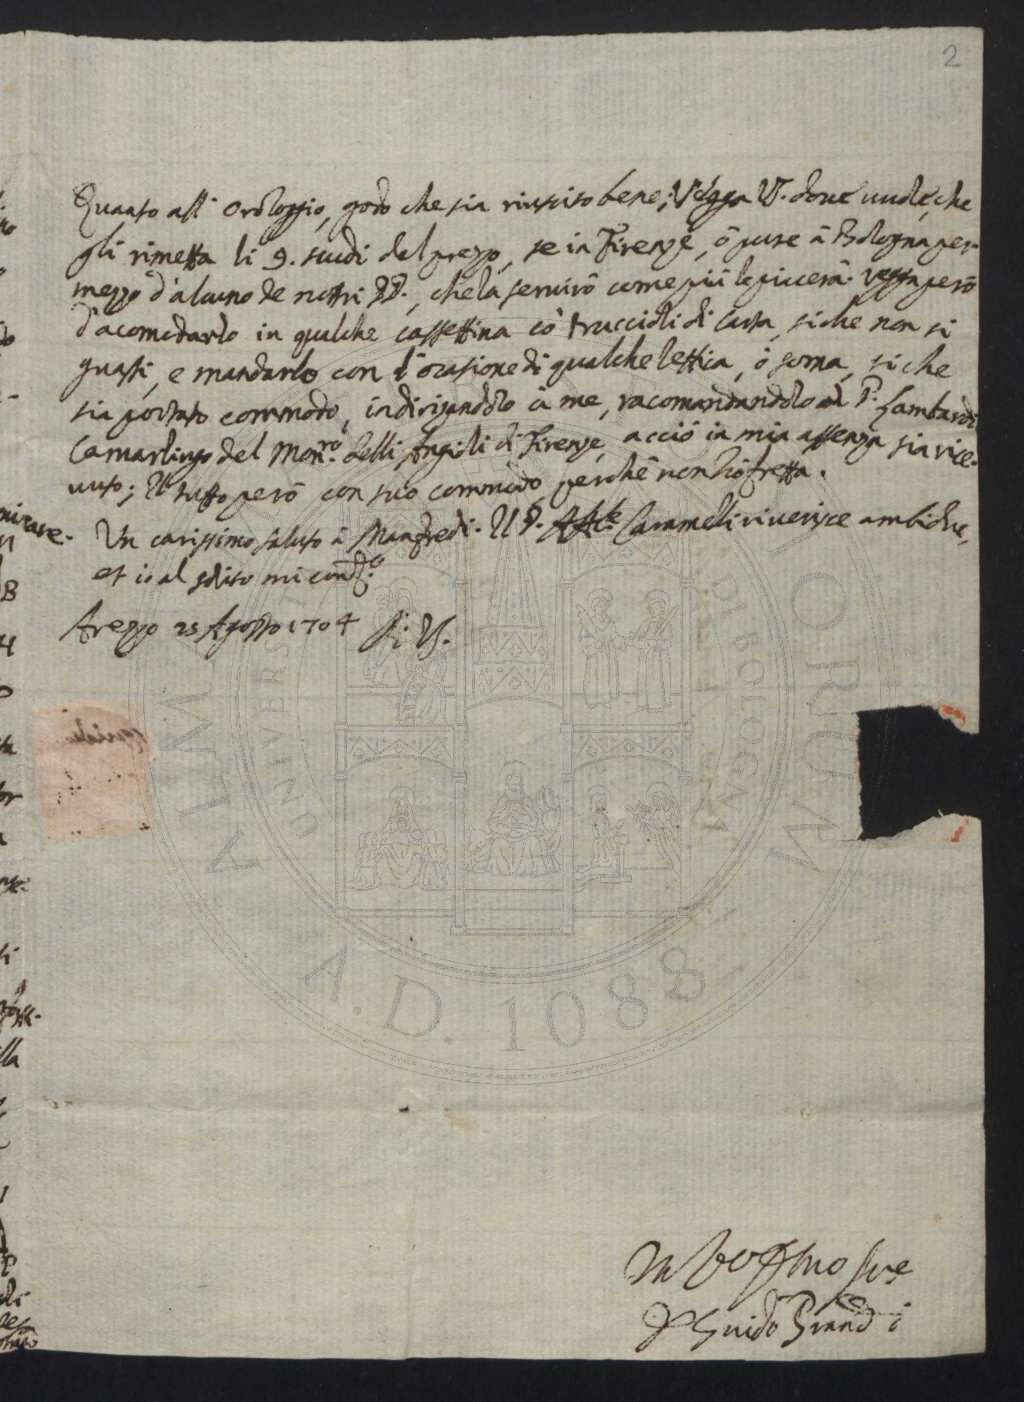 2
Quanto all' Orologgio, godo che sia riuscito bene; Vegga VS. dove vuole, che
gli rimetta li 9. scudi del prezzo, se in Firenze, ò pure à Bologna per
mezzo d'alcuno de nostri PP., che la servirò come più le piacerà. però
d'acomodarlo in qualche cassettina cō truccioli di carta, siche non si
guasti, e mandarlo con l'ocasione di qualche lettica, ò soma, si che
sia portato commodo, indirizandolo à me, racomandandolo al P. Lombardi
Camarlingo del Mon.ro delli Angioli di Firenze, acciò in mia assenza sia rice-
vuto; Il tutto però con suo commodo perche non hò fretta.
Un carissimo saluto à Manfredi. Il P. Caramelli riverisce ambidue,
et io al solito mi
Arezzo 25 Agosto 1704 Di VS.
D. Guido Grandi
ALMA MATER STUDIORUM
UNIVERSITÀ DI BOLOGNA
A.D. 1088